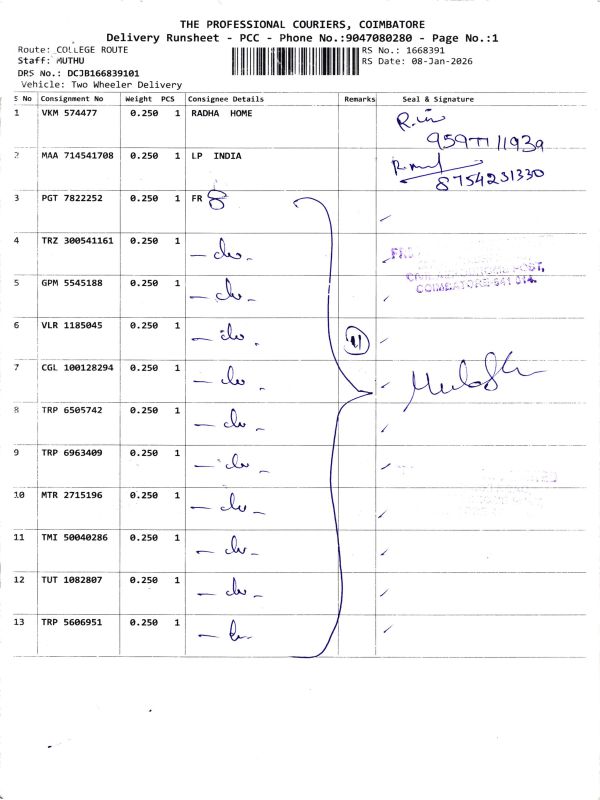 THE PROFESSIONAL COURIERS, COIMBATORE
Delivery Runsheet - PCC - Phone No.:9047080280 - Page No.:1
Route: COLLEGE ROUTE
RS No.: 1668391
Staff: MUTHU
RS Date: 08-Jan-2026
DRS No.: DCJB166839101
Vehicle: Two Wheeler Delivery
S No Consignment No Weight PCS Consignee Details Remarks Seal & Signature
1 VKM 574477 0.250 1 RADHA HOME
9597711939
2 MAA 714541708 0.250 1 LP INDIA
8754231330
3 PGT 7822252 0.250 1 FR 8
4 TRZ 300541161 0.250 1 - do -
POST,
COIMBATORE-641 014.
5 GPM 5545188 0.250 1 - do -
6 VLR 1185045 0.250 1 - do - 11
7 CGL 100128294 0.250 1 - do -
8 TRP 6505742 0.250 1 - do -
9 TRP 6963409 0.250 1 - do -
10 MTR 2715196 0.250 1 - do -
11 TMI 50040286 0.250 1 - do -
12 TUT 1082807 0.250 1 - do -
13 TRP 5606951 0.250 1 - do -